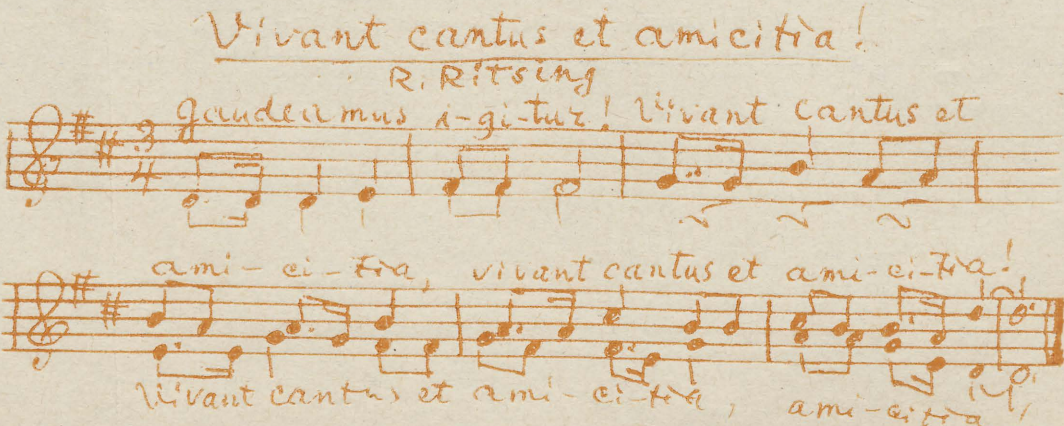 Vivant cantus et amicitia!
R. Ritsing
Gaudeamus i-gi-tur! Vivant cantus et
3
4
ami-ci-tia, vivant cantus et ami-ci-tia!
Vivant cantus et ami-ci-tia, ami-citia!